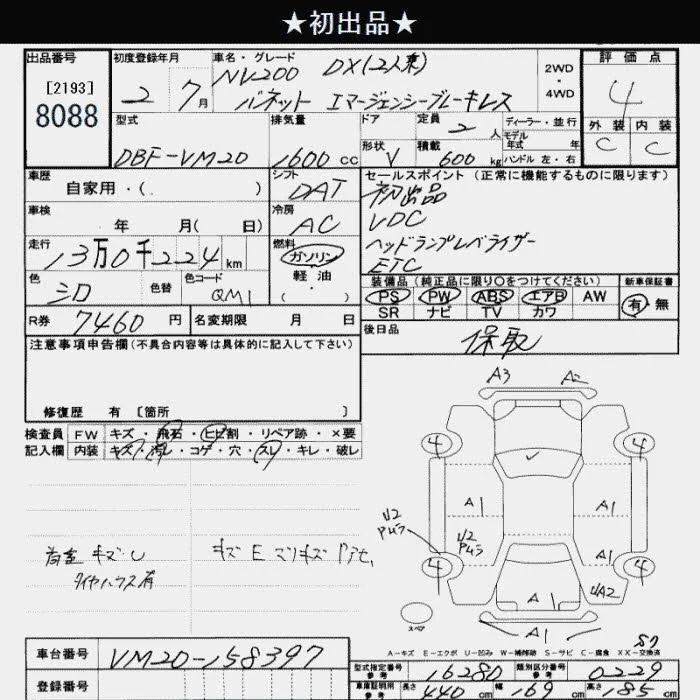 ★初出品★
出品番号 初度登録年月 車名・グレード 評価点
[2193]
8088
2 7月
NV200 DX(2人乗)
バネット エマージェンシーブレーキレス
2WD・4WD
4
外装 内装
C C
型式 排気量 ドア 定員 2人 ディーラー・並行
モデル年式 年
DBF-VM20 1600cc 形状 V 積載 600kg ハンドル 左・右
車歴 シフト セールスポイント(正常に機能するものに限ります)
自家用・( ) DAT 初出品
VDC
車検 冷房 ヘッドランプレベライザー
年 月( 日) AC ETC
走行 燃料
13万0千224km ガソリン
軽油
・
( )
色 色替 色コード
シロ QM1
装備品(純正品に限り○をつけてください) 新車保証書
PS PW ABS エアB AW 有・無
SR ナビ TV カワ
R券 7460円 名変期限 月 日
後日品 保取
注意事項申告欄(不具合内容等は具体的に記入して下さい)
修復歴 有 [箇所 ]
検査員 FW キズ・飛石・ヒビ割・リペア跡・×要
記入欄 内装 キズ・汚レ・コゲ・穴・スレ・キレ・破レ
キズU
タイヤハウス有
キズ E
A3 A2
4 4
A1 A1
U2
U2
A1
4 4
A1 U/A2
A1
スペア
A-キズ E-エクボ U-凹み W-補修跡 S-サビ C-腐食 XX-交換済
車台番号 VM20-158397
登録番号
型式指定番号 参考 16280 類別区分番号 参考 0229
車庫証明用 参考 長さ 440cm 幅 169cm 高さ 185cm